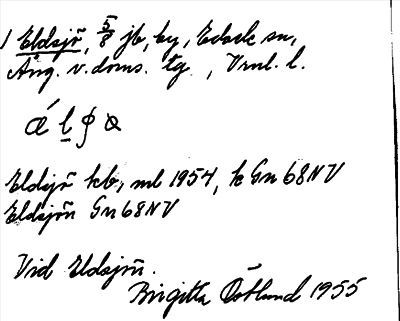 1 Eldsjö, 5/8 jb, by, Edsele sn,
Ång. v. doms. tg., Vrnl. l.
Eldsjö kb, ml 1954, k Gn 68 NV
Eldsjön Gn 68 NV
Vid Eldsjön.
Birgitta Östlund 1955